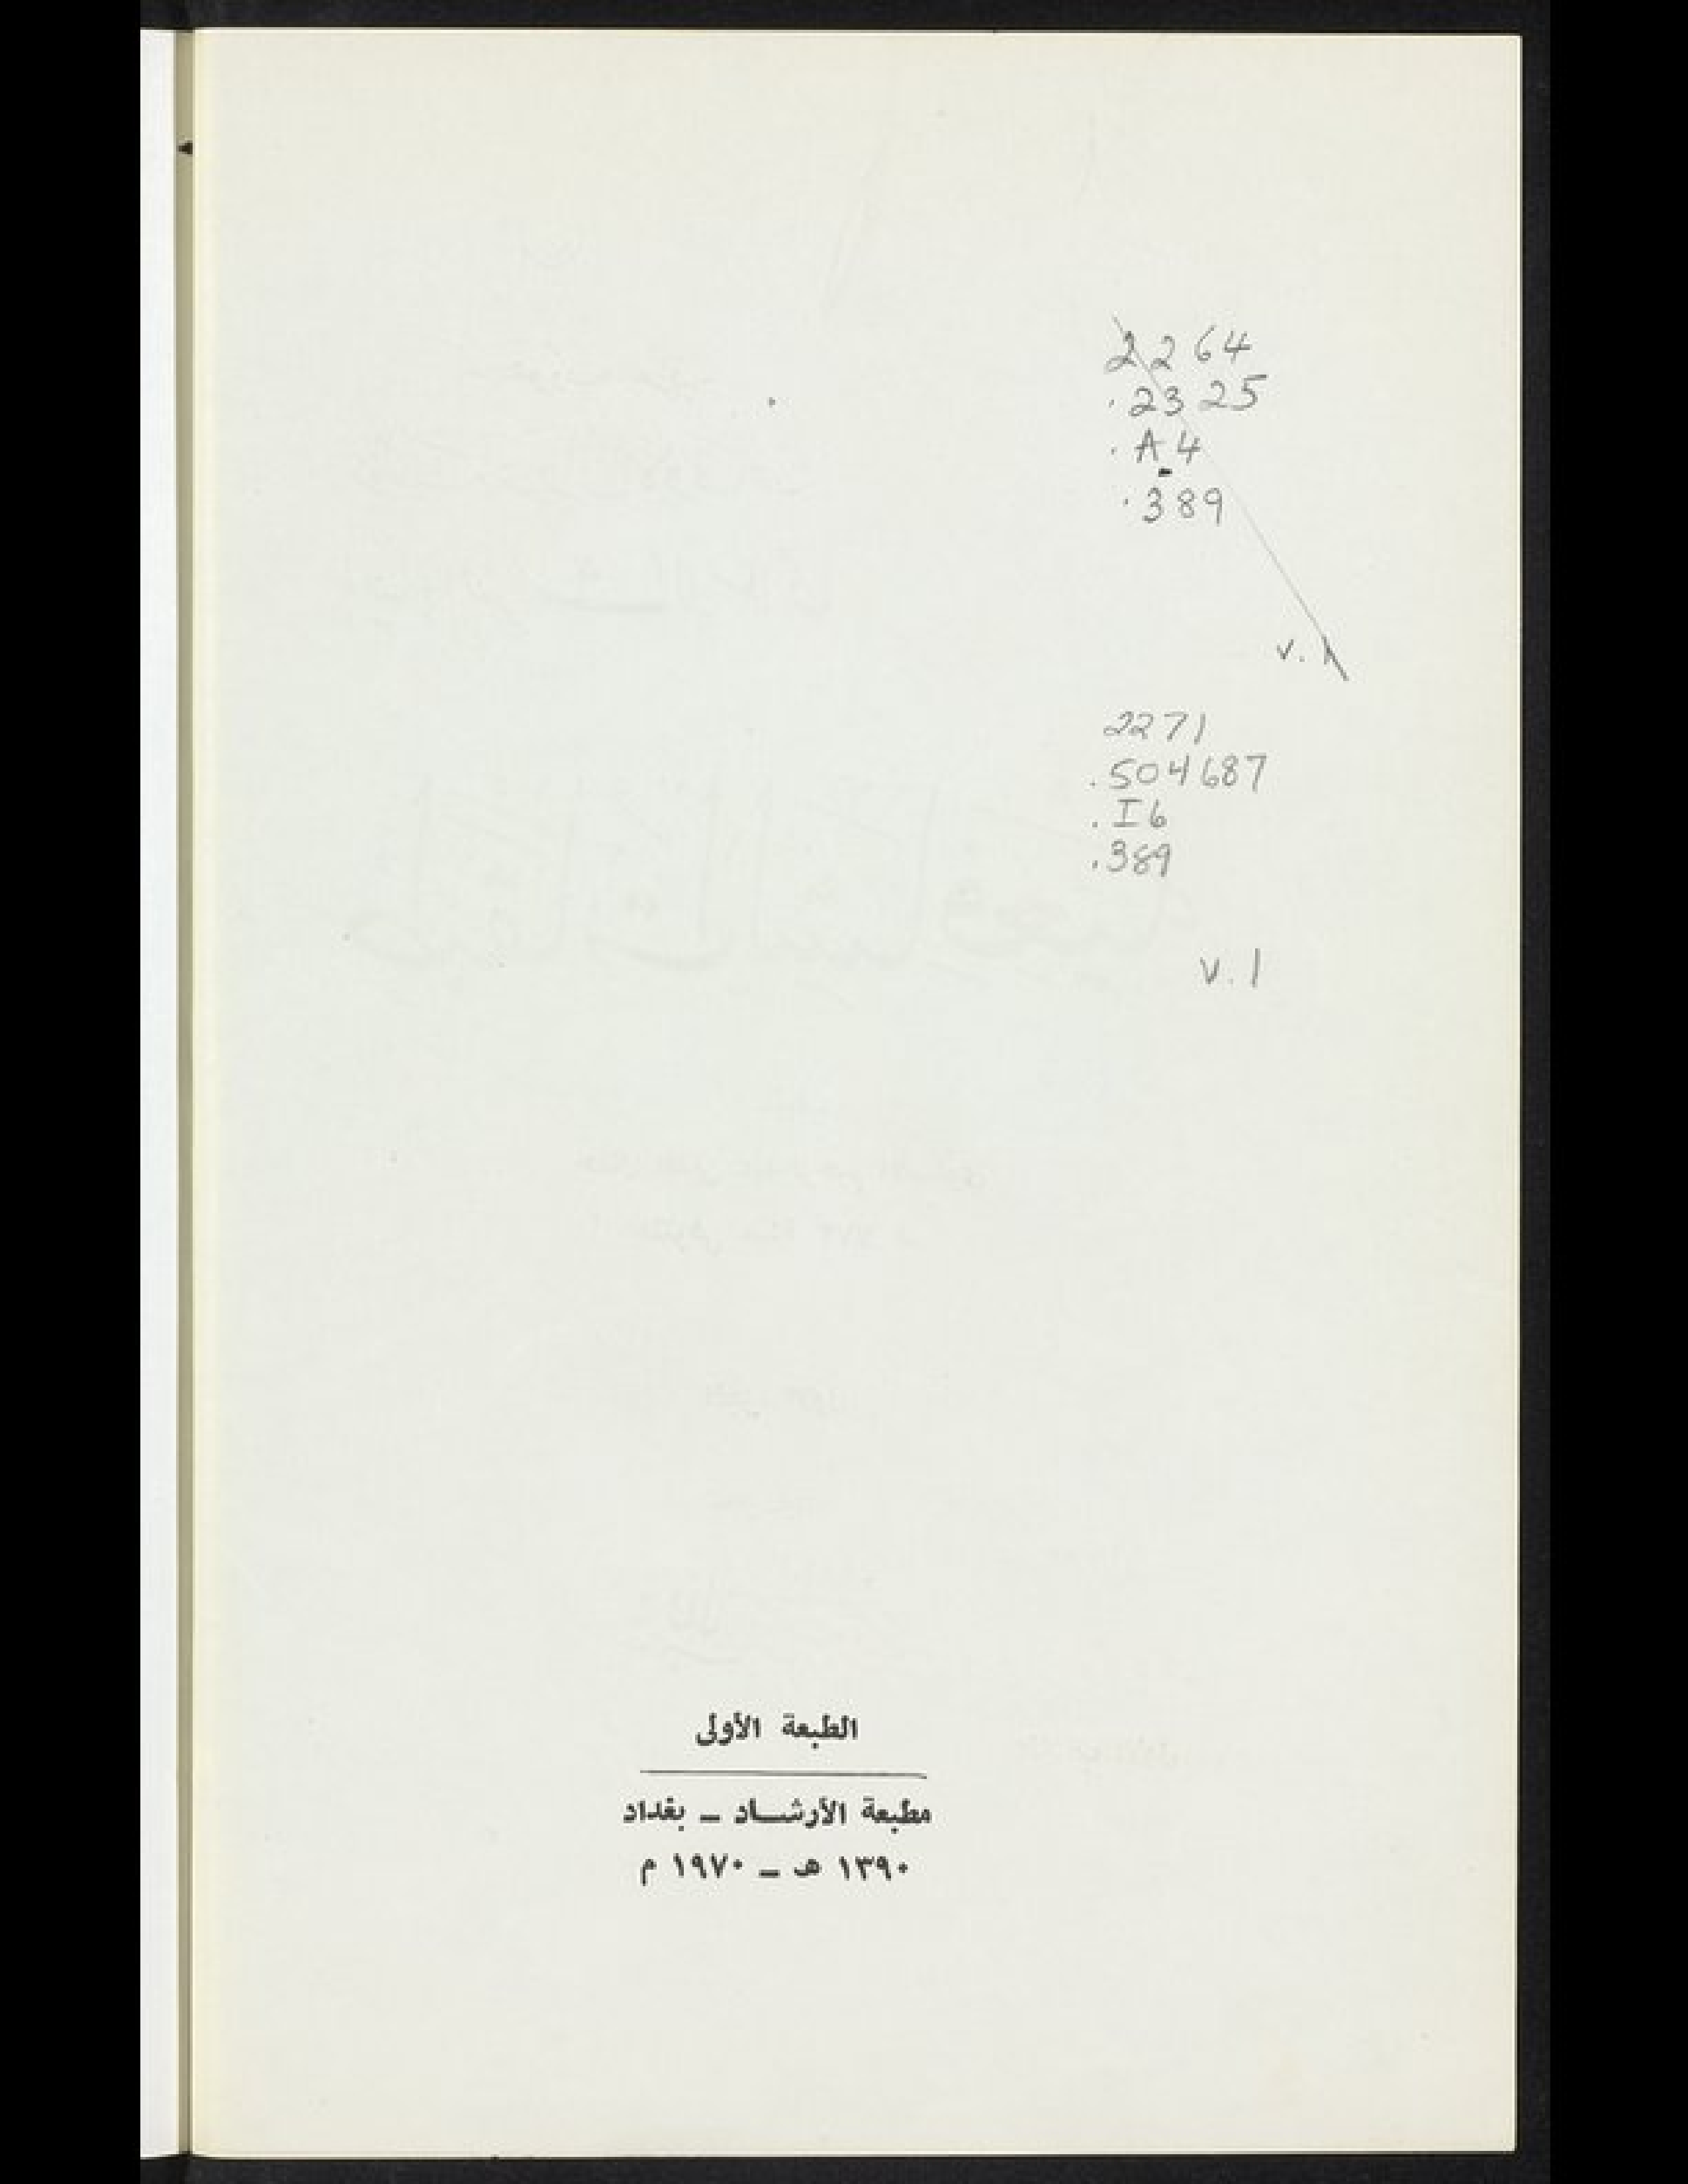 2264
.2325
.A4
.389
v.1
2271
.504687
.I6
.389
v.1
الطبعة الأولى
مطبعة الأرشـاد ـ بغداد
١٣٩٠ هـ ـ ١٩٧٠ م